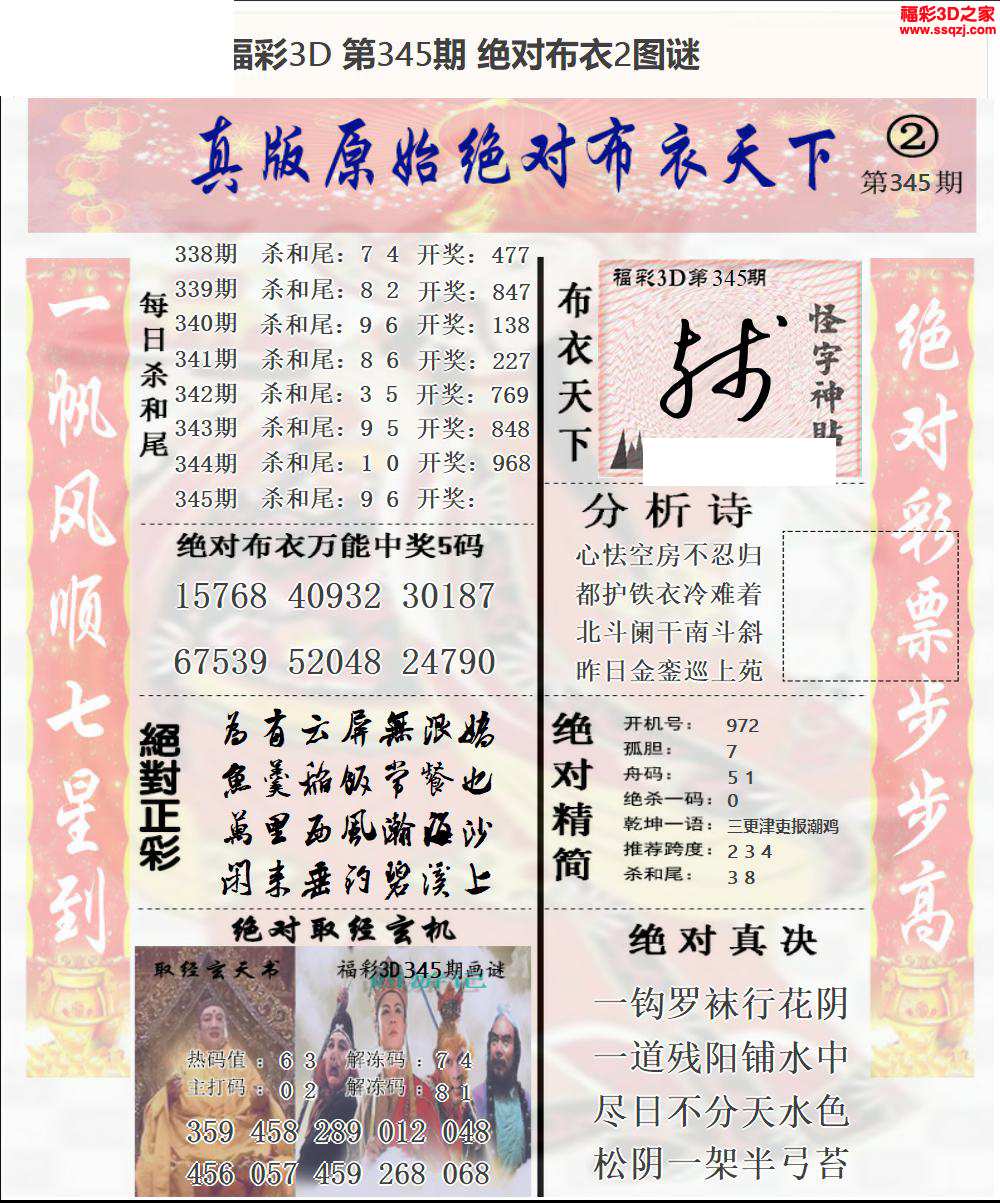 福彩3D之家
www.ssqzj.com
福彩3D 第345期 绝对布衣2图谜
真版原始绝对布衣天下
②
第345期
一帆风顺七星到
每日杀和尾
338期 杀和尾：7 4 开奖：477
339期 杀和尾：8 2 开奖：847
340期 杀和尾：9 6 开奖：138
341期 杀和尾：8 6 开奖：227
342期 杀和尾：3 5 开奖：769
343期 杀和尾：9 5 开奖：848
344期 杀和尾：1 0 开奖：968
345期 杀和尾：9 6 开奖：
绝对布衣万能中奖5码
15768 40932 30187
67539 52048 24790
絕對正彩
為有云屏無限嬌
魚羹稻飯常餐也
萬里西風瀚海沙
閑来垂钓碧溪上
绝对取经玄机
取经玄天书
福彩3D345期画谜
热码值：6 3 解冻码：7 4
主打码：0 2 解冻码：8 1
359 458 289 012 048
456 057 459 268 068
布衣天下
福彩3D第345期
怪字神贴
分析诗
心怯空房不忍归
都护铁衣冷难着
北斗阑干南斗斜
昨日金銮巡上苑
绝对精简
开机号：972
孤胆：7
舟码：5 1
绝杀一码：0
乾坤一语：三更津吏报潮鸡
推荐跨度：2 3 4
杀和尾：3 8
绝对真决
一钩罗袜行花阴
一道残阳铺水中
尽日不分天水色
松阴一架半弓苔
绝对彩票步步高